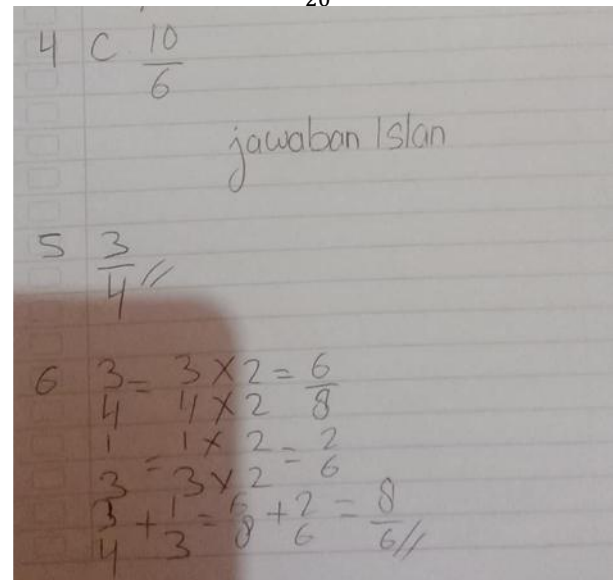 20
4 C 10/6
jawaban Islan
5 3/4 //
6 3/4 = 3 X 2 / 4 X 2 = 6/8
1/3 = 1 X 2 / 3 X 2 = 2/6
3/4 + 1/3 = 6/8 + 2/6 = 8/6 //